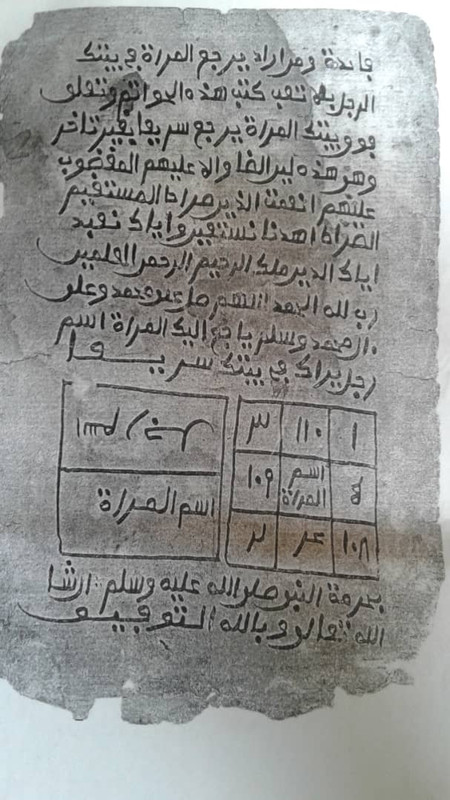 فائدة ومن اراد يرجع المراة في بيتك
الرجل بلا تعب كتب هذه الخواتم وتعلق
فوق بيتك المراة يرجع سريعا بغير تاخر
وهو هذه لين الضا ولا عليهم المغضوب
عليهم انعمت الذين صراط المستقيم
الصراط اهدنا نستعين واياك نعبد
اياك الدين ملك الرحيم الرحمن العلمين
رب لله الحمد اللهم صل على محمد وعلى
ءال محمد وسلم يا اليك المراة اسم
رجل في بيتك سريعا
١ ١١٠ ٣
اسم المراة ١٠٩
١٠٨
اسم
اسم المراة
بحرمة النبي صلى الله عليه وسلم ان شا
الله تعالى وبالله التوفيق